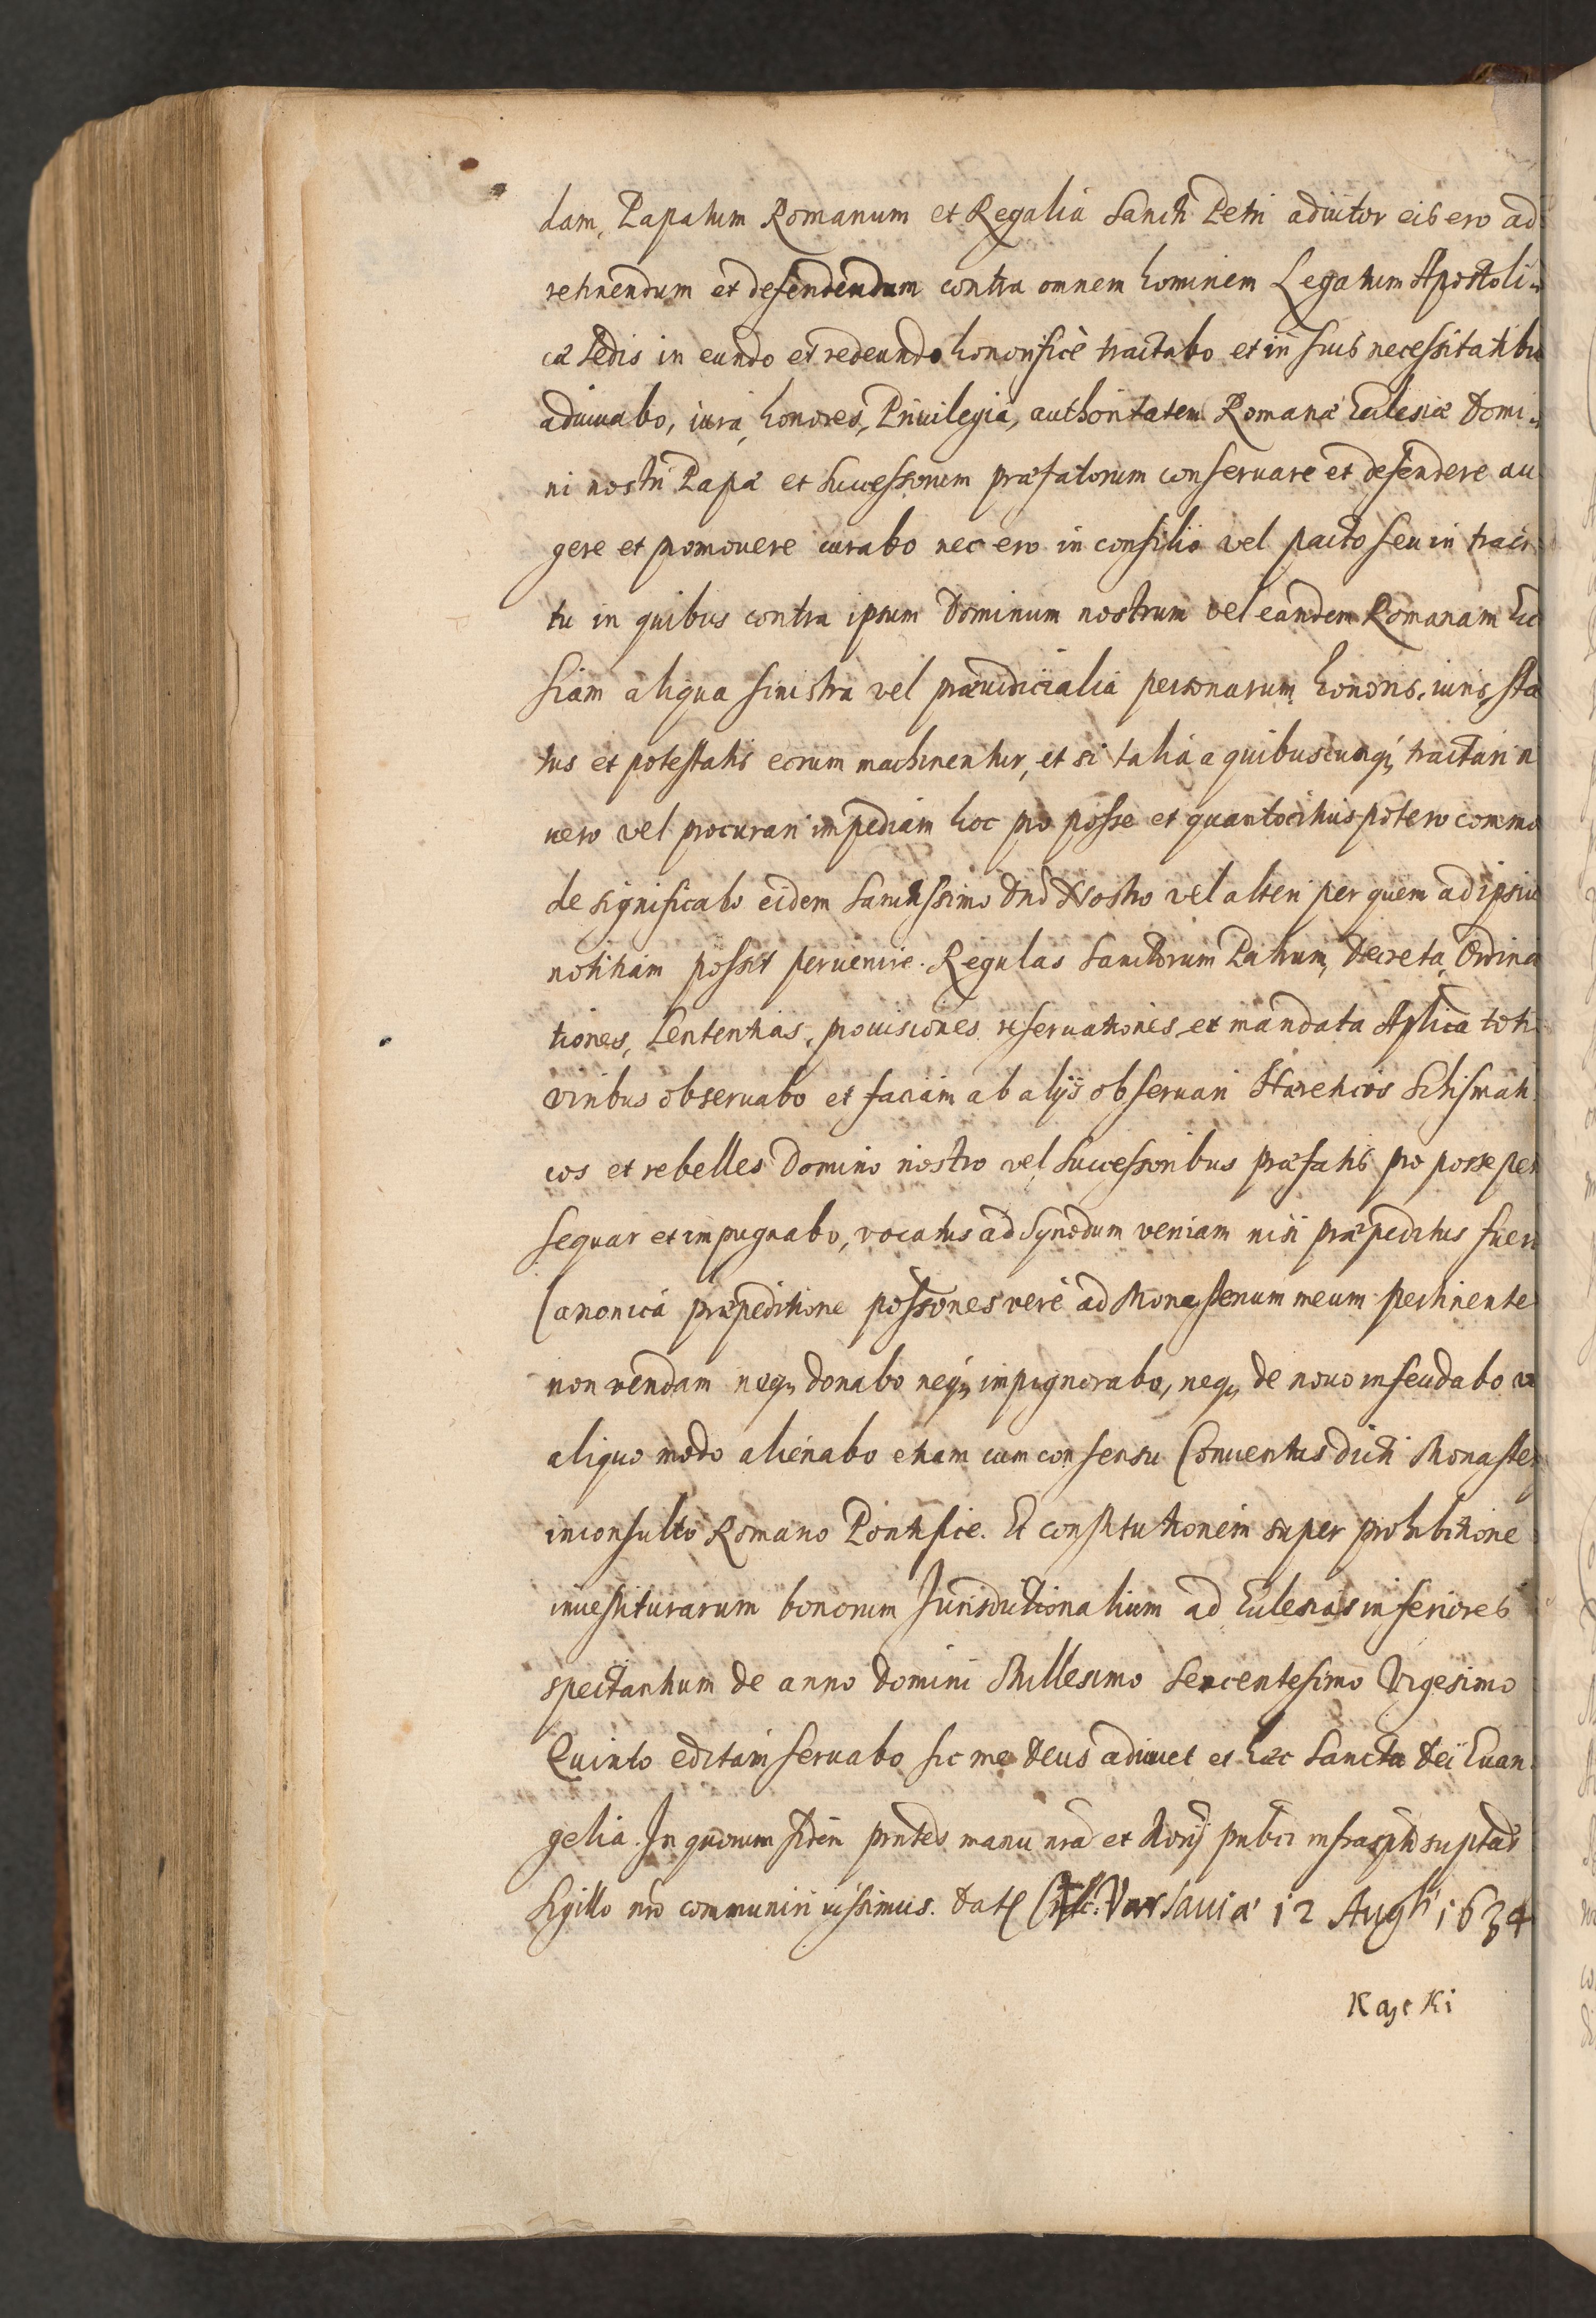 dam, Papatum Romanum et Regalia Sancti Petri adiutor eis ero ad
retinendum et defendendum contra omnem hominem Legatum Apostoli=
cæ Sedis in eundo et redeundo honorificè tractabo et in suis necessitatibu
adiuuabo, iura, honores, Priuilegia, authoritatem Romanæ Ecclesiæ Domi=
ni nostri Papæ et Successorum præfatorum conseruare et defendere au
gere et promouere curabo nec ero in consilio vel pacto seu in trac
tu in quibus contra ipsum Dominum nostrum vel eandem Romanam Ecc
siam aliqua sinistra vel præiudicialia personarum, honoris, iuris, sta
tus et potestatis eorum machinentur, et si talia a quibuscunq, tractari n
uero vel procurari impediam hoc pro posse et quantocitius potero commo
de significabo eidem Sanctissimo Dno Nostro vel alteri per quem ad ipsius
notitiam possit peruenire. Regulas Sanctorum Patrum, Decreta, Ordina
tiones, Sententias, prouisiones reseruationes et mandata Aplica toti
viribus obseruabo et faciam ab alijs obseruari Hæreticos Schismati
cos et rebelles Domino nostro vel Successoribus præfatis pro posse per
sequar et impugnabo, vocatus ad Synodum veniam nisi præpeditus fuer
Canonica præpeditione possones verè ad Monasterium meum pertinente
non vendam neq, donabo neq, impignorabo, neq, de nouo infeudabo v
aliquo modo alienabo etiam cum consensu Conuentus dicti Monaster
inconsulto Romano Pontifice. Et constitutionem super prohibitione
inuestiturarum bonorum Jurisdictionalium ad Ecclesias inferiores
spectantium de anno Domini Millesimo Sexcentesimo Vigesimo
Quinto editam seruabo sic me Deus adiuuet et hæc Sancta Dei Euan
gelia. In quorum fidem prntes manu nra et Norij publci infrascpti suptas
Sigillo nro communiri iussimus. Dat Varsauiæ 12 Augti 1634
Kaęcki